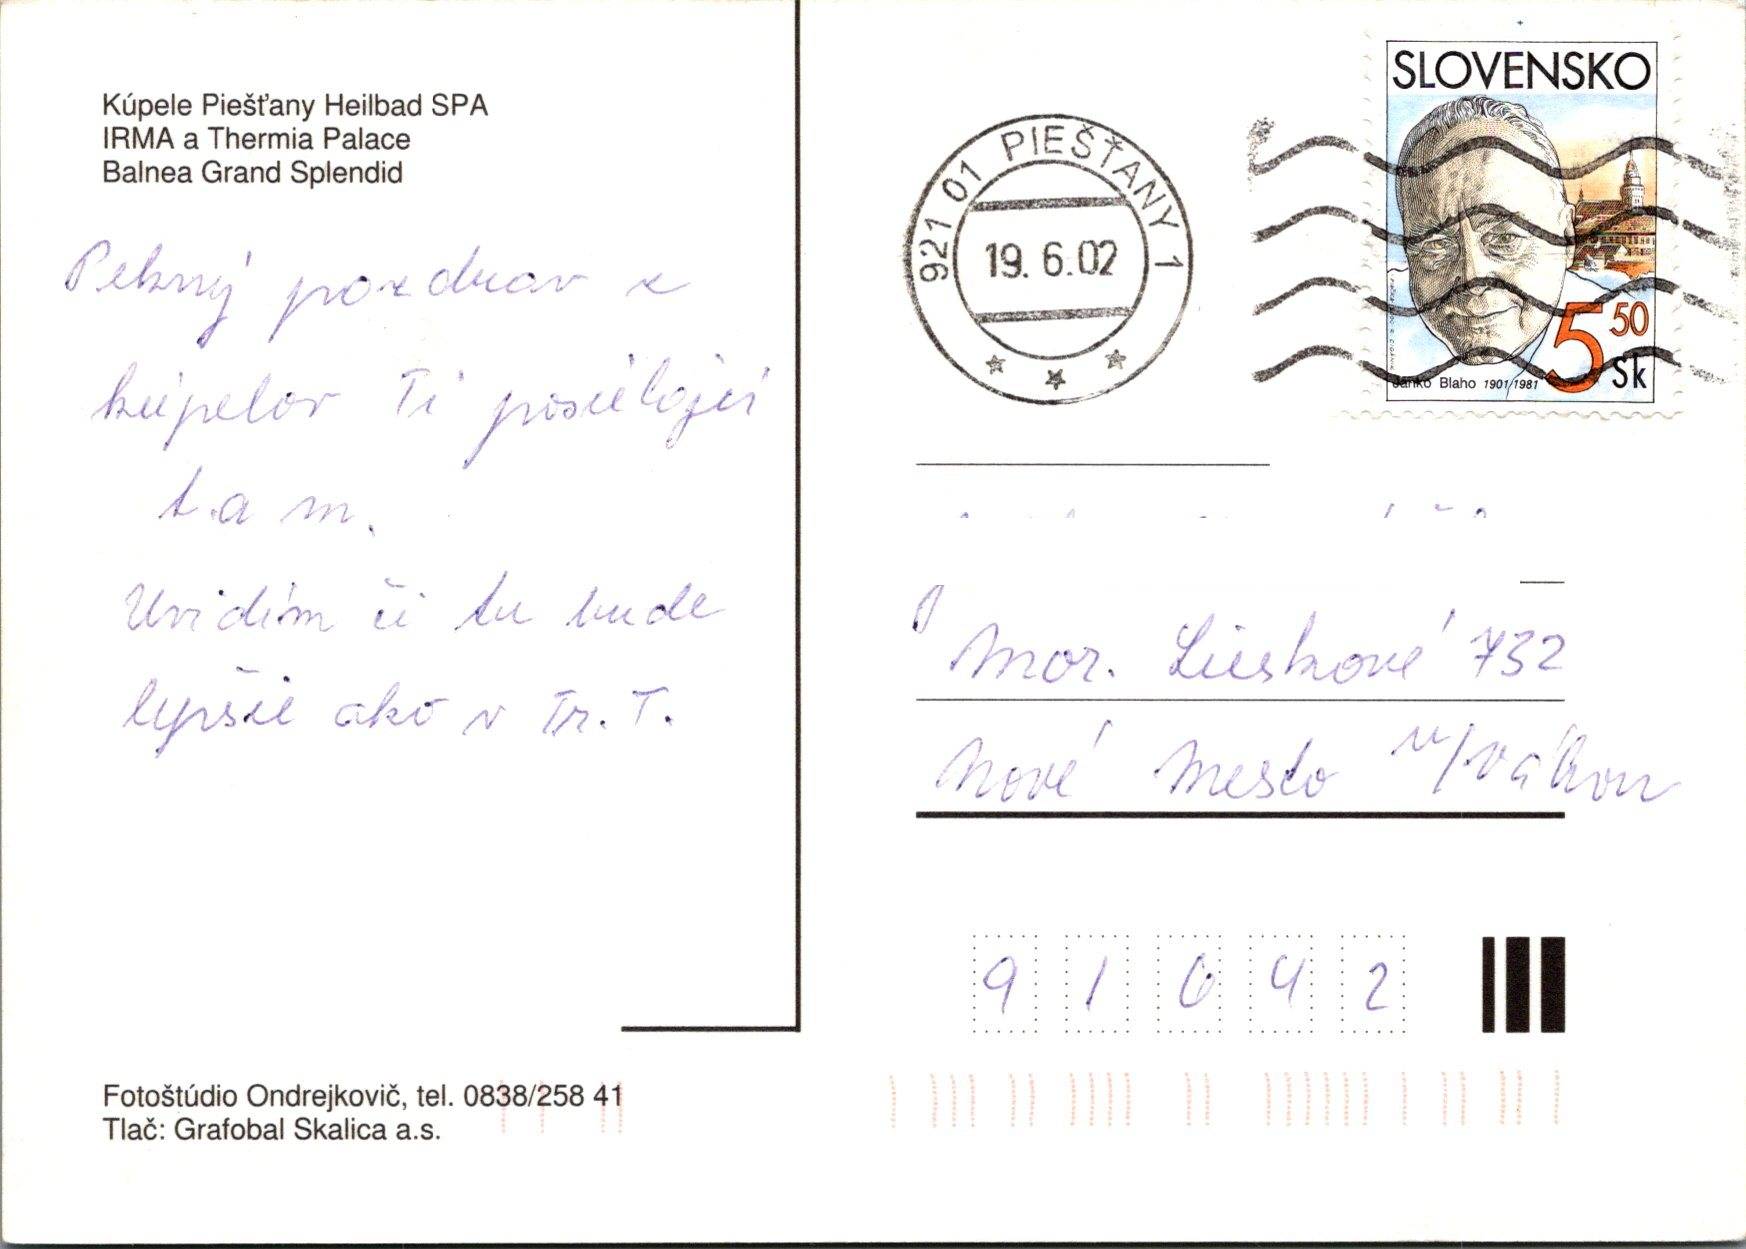 Kúpele Piešťany Heilbad SPA
IRMA a Thermia Palace
Balnea Grand Splendid
Pekný pozdrav z
kúpelov Ti
tam.
Uvidím či tu bude
lepšie ako v Tr. T.
Fotoštúdio Ondrejkovič, tel. 0838/258 41
Tlač: Grafobal Skalica a.s.
921 01 PIEŠŤANY 1
19. 6. 02
SLOVENSKO
5 50 Sk
Janko Blaho 1901/1981
Mor. Lieskové 732
Nové Mesto n/Váhom
91642